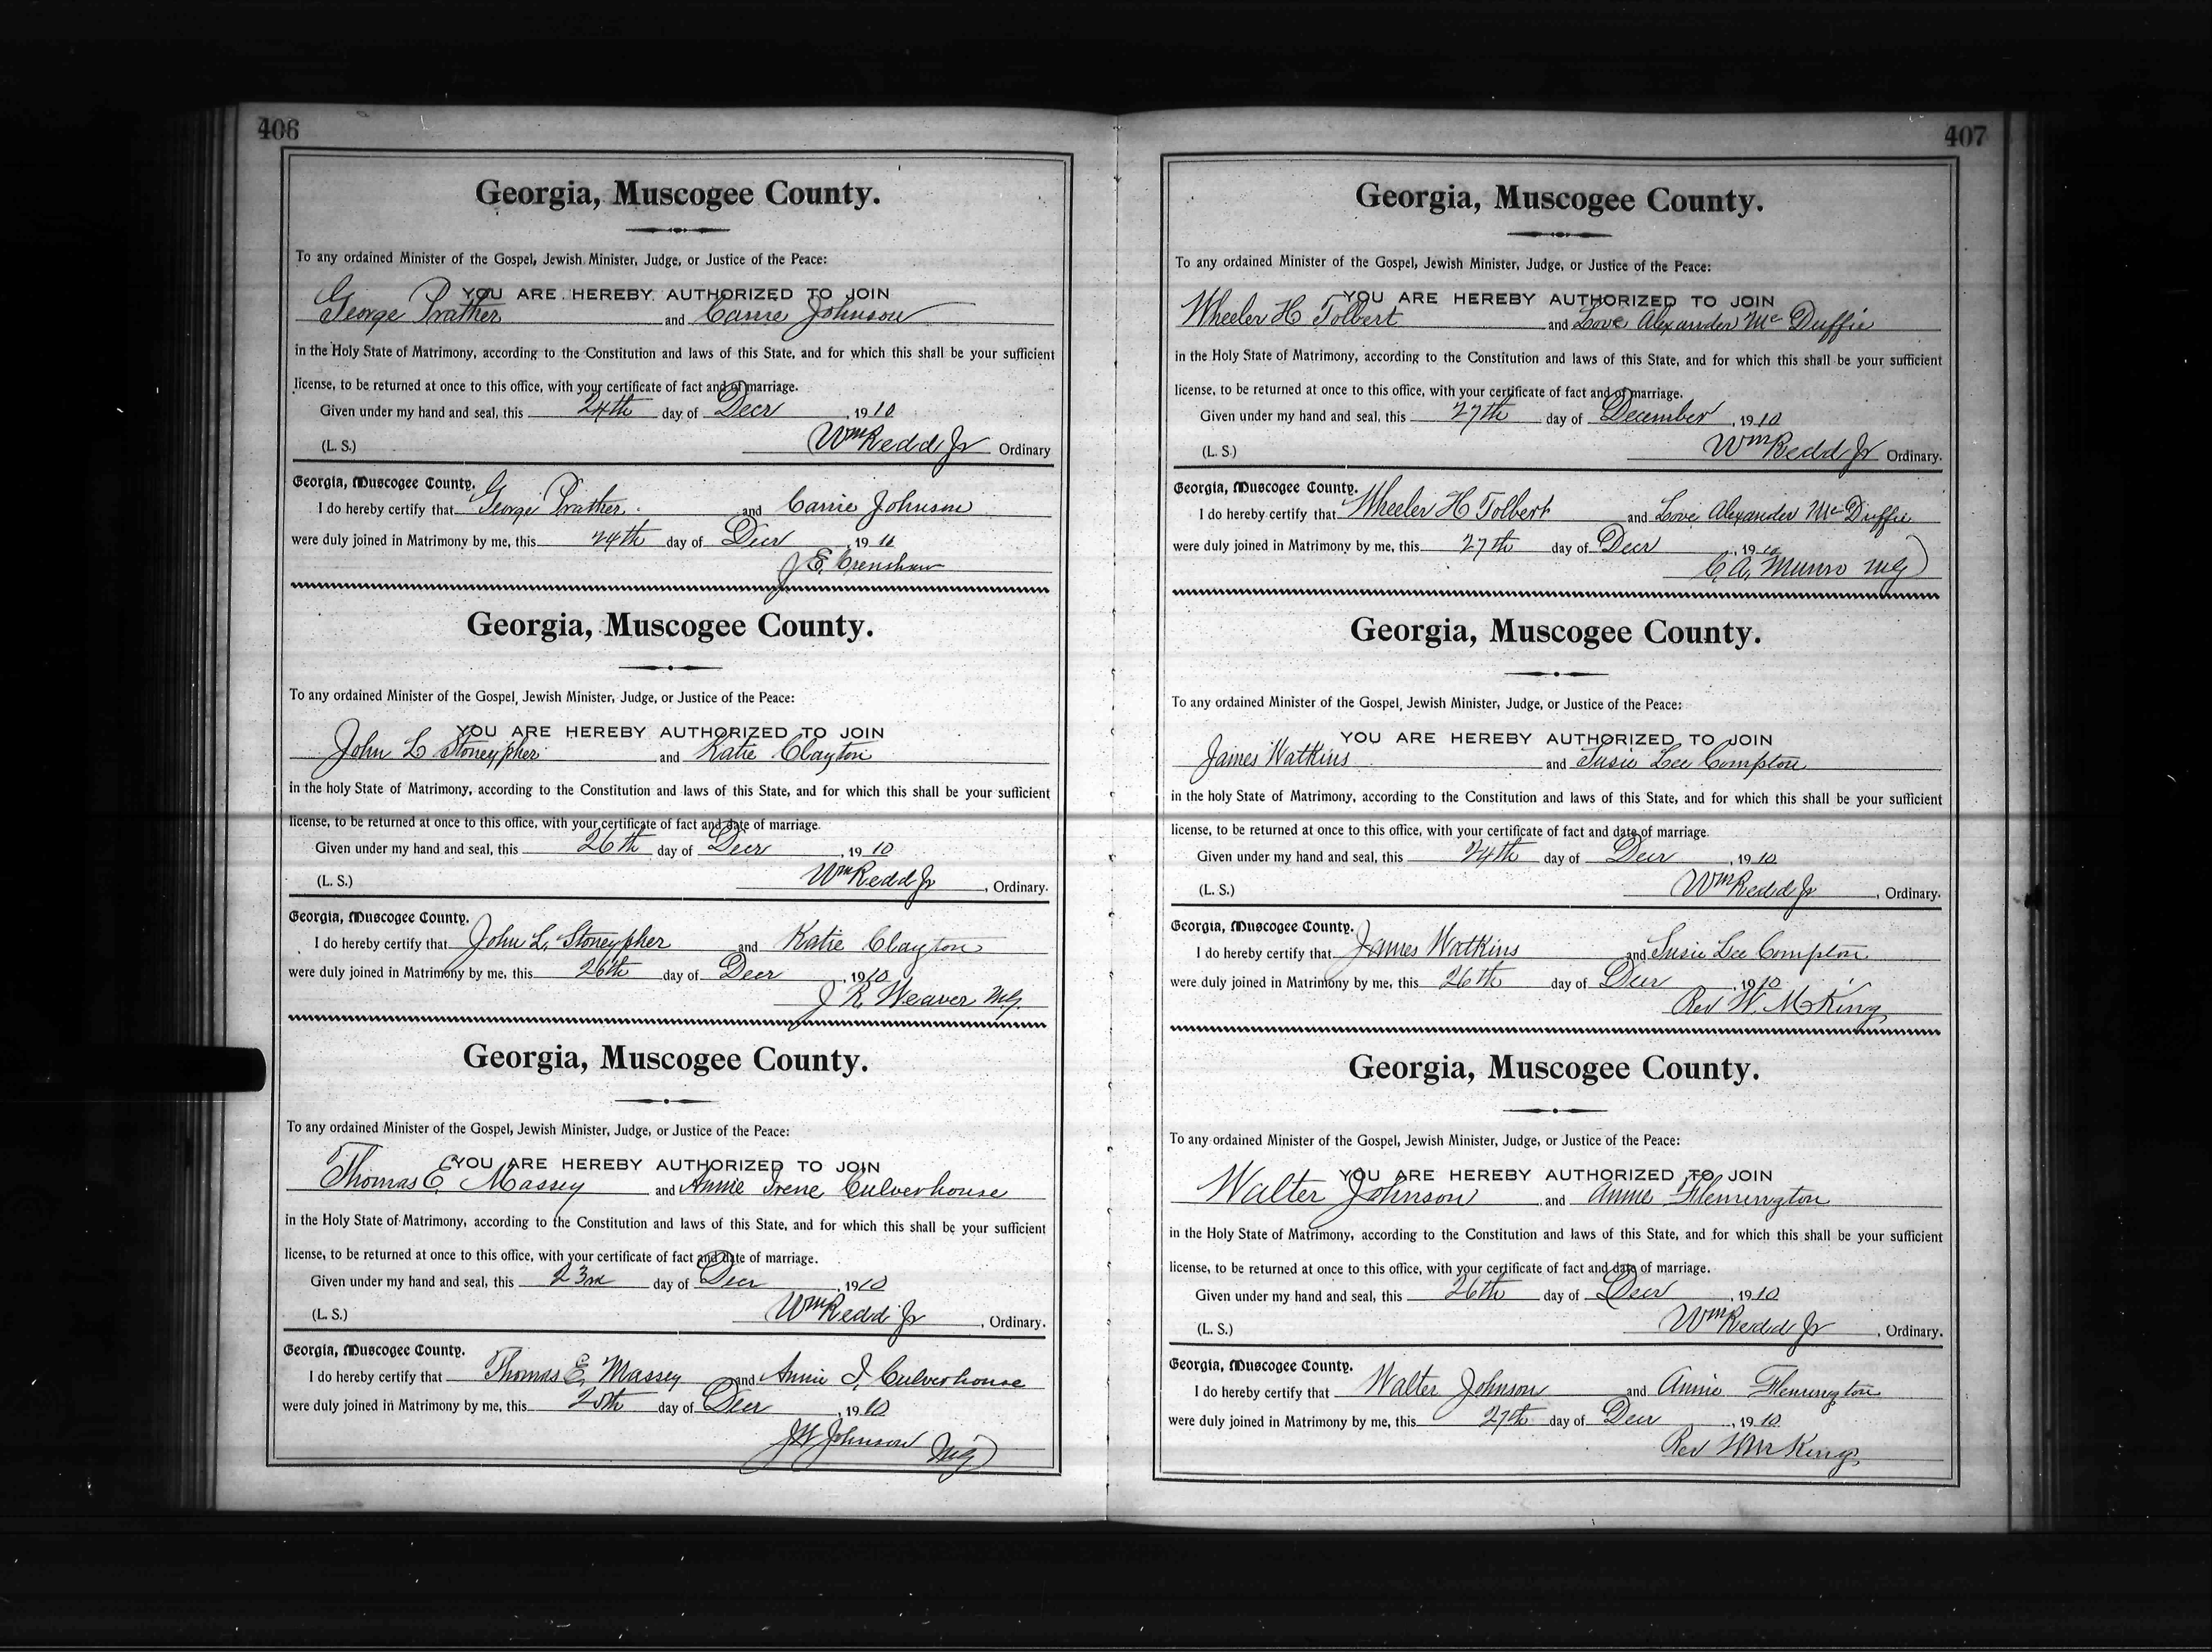 406
Georgia, Muscogee County.
To any ordained Minister of the Gospel, Jewish Minister, Judge, or Justice of the Peace:
YOU ARE HEREBY AUTHORIZED TO JOIN
George Prather and Carrie Johnson
in the Holy State of Matrimony, according to the Constitution and laws of this State, and for which this shall be your sufficient
license, to be returned at once to this office, with your certificate of fact and of marriage.
Given under my hand and seal, this 24th day of Decr , 1910
(L. S.) Wm Redd Jr Ordinary
Georgia, Muscogee County.
I do hereby certify that George Prather and Carrie Johnson
were duly joined in Matrimony by me, this 24th day of Decr , 1910
J. E. Crenshaw
Georgia, Muscogee County.
To any ordained Minister of the Gospel, Jewish Minister, Judge, or Justice of the Peace:
YOU ARE HEREBY AUTHORIZED TO JOIN
John L Stoneypher and Katie Clayton
in the holy State of Matrimony, according to the Constitution and laws of this State, and for which this shall be your sufficient
license, to be returned at once to this office, with your certificate of fact and date of marriage.
Given under my hand and seal, this 26th day of Decr , 1910
(L. S.) Wm Redd Jr , Ordinary.
Georgia, Muscogee County.
I do hereby certify that John L. Stoneypher and Katie Clayton
were duly joined in Matrimony by me, this 26th day of Decr , 1910
J R Weaver Mg.
Georgia, Muscogee County.
To any ordained Minister of the Gospel, Jewish Minister, Judge, or Justice of the Peace:
YOU ARE HEREBY AUTHORIZED TO JOIN
Thomas E. Massey and Annie Irene Culverhouse
in the Holy State of Matrimony, according to the Constitution and laws of this State, and for which this shall be your sufficient
license, to be returned at once to this office, with your certificate of fact and date of marriage.
Given under my hand and seal, this 23rd day of Decr , 1910
(L. S.) Wm Redd Jr , Ordinary.
Georgia, Muscogee County.
I do hereby certify that Thomas E. Massey and Annie I. Culverhouse
were duly joined in Matrimony by me, this 25th day of Decr , 1910
J W Johnson Mg
407
Georgia, Muscogee County.
To any ordained Minister of the Gospel, Jewish Minister, Judge, or Justice of the Peace:
YOU ARE HEREBY AUTHORIZED TO JOIN
Wheeler H Tolbert and Love Alexander McDuffie
in the Holy State of Matrimony, according to the Constitution and laws of this State, and for which this shall be your sufficient
license, to be returned at once to this office, with your certificate of fact and of marriage.
Given under my hand and seal, this 27th day of December , 1910
(L. S.) Wm Redd Jr Ordinary.
Georgia, Muscogee County.
I do hereby certify that Wheeler H Tolbert and Love Alexander McDuffie
were duly joined in Matrimony by me, this 27th day of Decr , 1910
C. A. Munro Mg
Georgia, Muscogee County.
To any ordained Minister of the Gospel, Jewish Minister, Judge, or Justice of the Peace:
YOU ARE HEREBY AUTHORIZED TO JOIN
James Watkins and Susie Lee Compton
in the holy State of Matrimony, according to the Constitution and laws of this State, and for which this shall be your sufficient
license, to be returned at once to this office, with your certificate of fact and date of marriage.
Given under my hand and seal, this 24th day of Decr , 1910
(L. S.) Wm Redd Jr , Ordinary.
Georgia, Muscogee County.
I do hereby certify that James Watkins and Susie Lee Compton
were duly joined in Matrimony by me, this 26th day of Decr , 1910
Rev W. M King
Georgia, Muscogee County.
To any ordained Minister of the Gospel, Jewish Minister, Judge, or Justice of the Peace:
YOU ARE HEREBY AUTHORIZED TO JOIN
Walter Johnson and Annie Flemington
in the Holy State of Matrimony, according to the Constitution and laws of this State, and for which this shall be your sufficient
license, to be returned at once to this office, with your certificate of fact and date of marriage.
Given under my hand and seal, this 26th day of Decr , 1910
(L. S.) Wm Redd Jr , Ordinary.
Georgia, Muscogee County.
I do hereby certify that Walter Johnson and Annie Flemington
were duly joined in Matrimony by me, this 27th day of Decr , 1910
Rev WM King